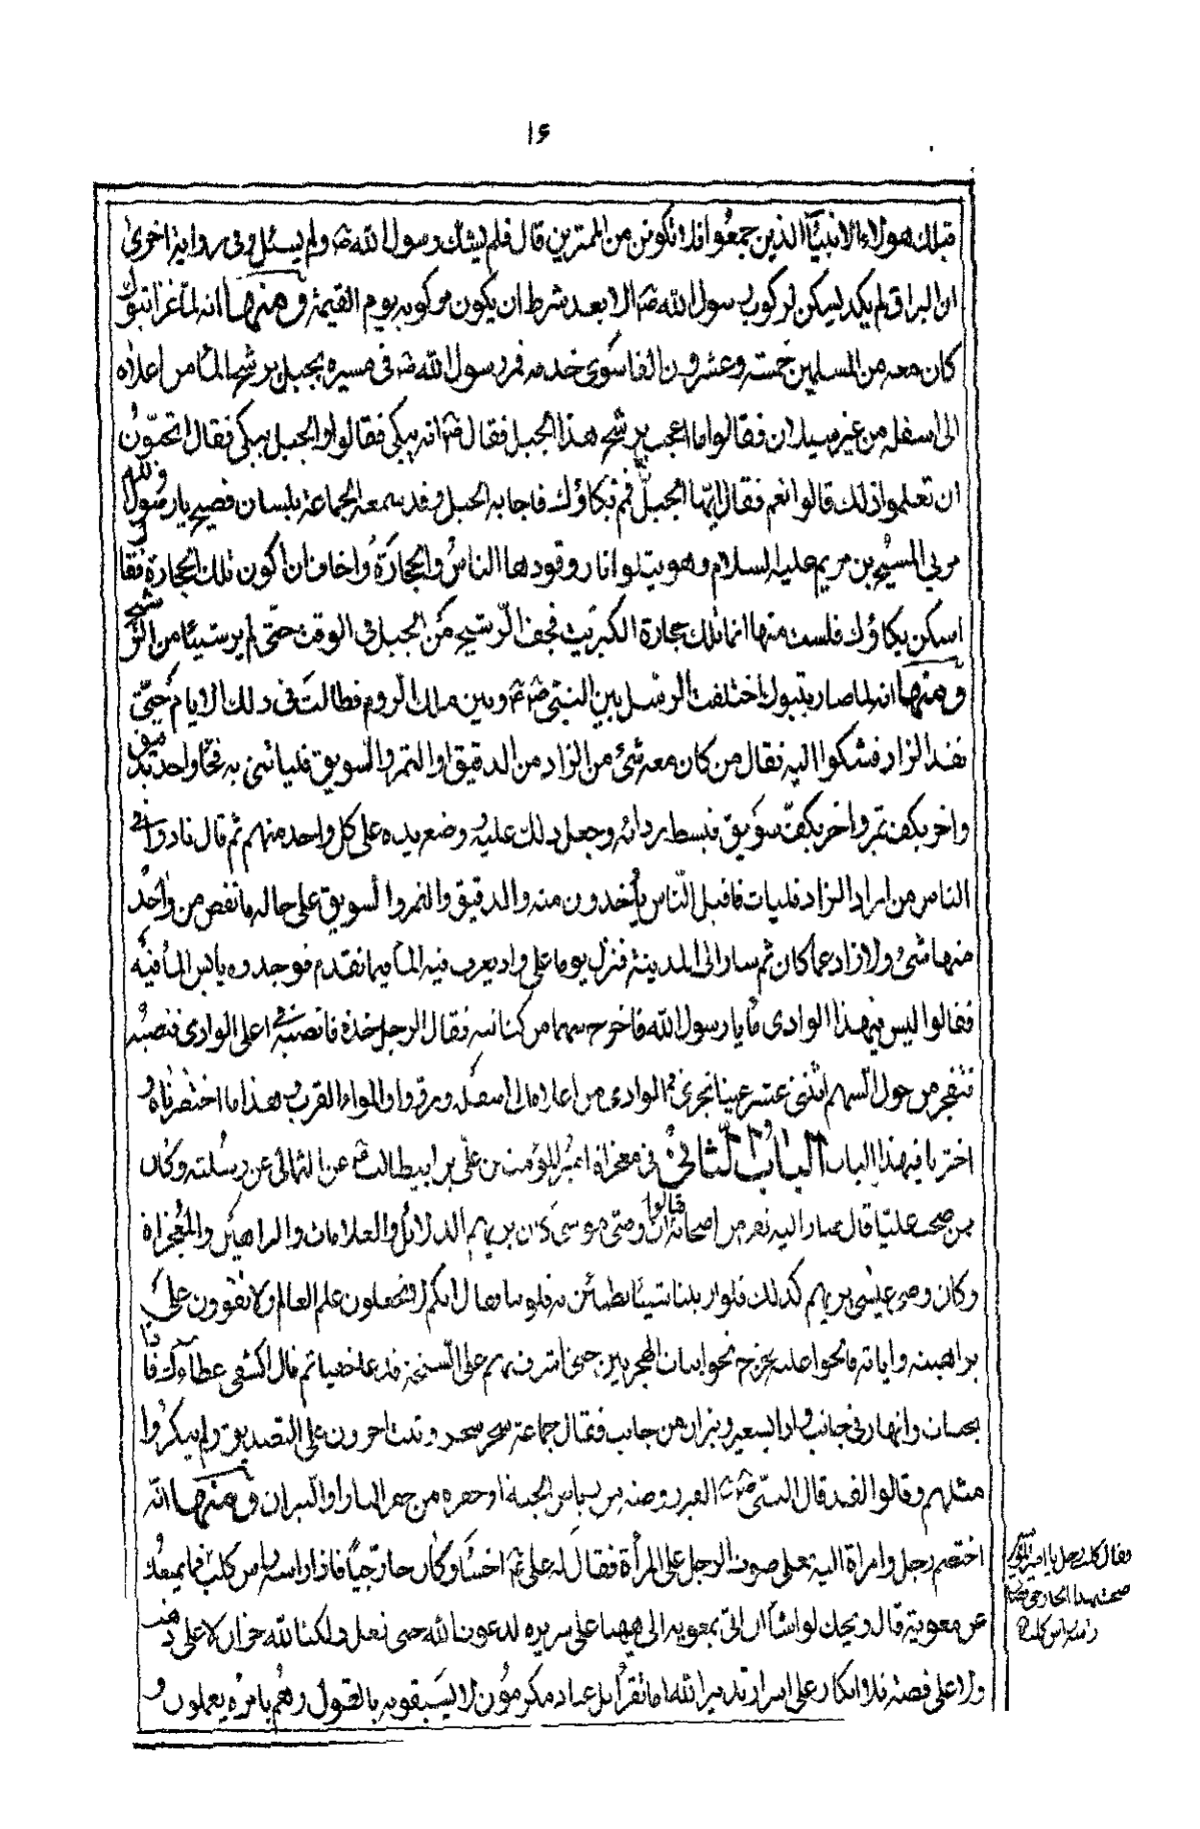 ١۶
قبلك هؤلاء الانبيآء الذين جمعوا فلا تكونن من الممترين قال فلم يشك رسول الله ص ولم يسئل وفى رواية اخرى
ان البراق لم يكد ليسكن لركوب رسول الله ص الا بعد شرط ان يكون مركوبه يوم القيمة ومنها انه لما غزا تبوك
كان معه من المسلمين خمسة وعشرون الفا سوى خدمه فمر رسول الله ص فى مسيره بجبل يرشح الماء من اعلاه
الى اسفله من غير سيلان فقالوا ما اعجب يرشح هذا الجبل فقال ص انه يبكى فقالوا والجبل يبكى فقال اتحبون
ان تعلموا ذلك قالوا نعم فقال ايها الجبل مم بكاؤك فاجابه الجبل وقد سمعه الجماعة بلسان فصيح يا رسول الله
مر بي المسيح بن مريم عليه السلام وهو يتلو نارا وقودها الناس والحجارة واخاف ان اكون تلك الحجارة فقال
اسكن بكاؤك فلست منها انما تلك حجارة الكبريت فجف الرشيح من الجبل فى الوقت حتى لم ير شيئا من الرشح
ومنها انه لما صار بتبوك اختلفت الرسل بين النبى ص وبين ملك الروم فطالت فى ذلك الايام حتى
نفد الزاد فشكوا اليه فقال من كان معه شئ من الزاد من الدقيق او التمر والسويق فلياتنى به فجاء واحد بدقيق
واخر بكف تمر واخر بكف سويق فبسط ردائه وجعل ذلك عليه ووضع يده على كل واحد منهم ثم قال نادوا فى
الناس من اراد الزاد فليات فاقبل الناس ياخذون منه والدقيق والتمر والسويق على حاله ما نقص من واحد
منها شئ ولا زاد عما كان ثم سار الى المدينة فنزل يوما على واد يعرف فيه الماء فيما تقدم فوجدوه يابس الماء فيه
فقالوا ليس فيهذا الوادى ماء يا رسول الله فاخرج سهما من كنانته فقال لرجل خذه فانصبه فى اعلى الوادى فنصبه
فتفجر من حول السهم اثنتى عشرة عينا تجرى فى الوادى من اعلاه الى اسفله ورووا وملؤا القرب هذا ما اختصرناه و
اخترنا فيهذا الباب الباب الثانى فى معجزاة امير المؤمنين على بن ابيطالب ع عن الثمالى عن رميلته وكان
ممن صحب عليا قال صار اليه نفر من اصحابه قالوا ان وصى موسى كان يريهم الدلائل والعلامات والبراهين والمعجزاة
وكان وصى عيسى يريهم كذلك فلو اريتنا شيئا تطمئن به قلوبنا فقال انكم لا تحتملون علم العالم ولا تقوون على
براهينه واياته فالحوا عليه فخرج نحو ابيات الهجريين حتى اشرف بهم على السبخة فدعا خفيا ثم قال اكشفى غطاءك فاذا
بجنات وانهار فى جانب واذا بسعير ونيران من جانب فقال جماعة سحر سحر وثبت اخرون على التصديق ولم ينكروا
مثلهم وقالوا لقد قال النبى ص القبر روضة من رياض الجنة او حفرة من حفر النار او النيران ومنها انه
اختصم رجل وامراة اليه فعلى صوت الرجل على المرأة فقال له على ع اخسأ وكان خارجيا فاذا راسه راس كلب فما يمنعك
عن معوية قال ويحك لو اشأ ان اتى بمعوية الى ههنا على سريره لدعوت الله حتى فعل ولكنا لله خزان لا على ذهب
ولا على فضة فلا انكار على اسرار تدبير الله اما تقرأ بل عباد مكرمون لا يسبقونه بالقول وهم بامره يعملون و
فقال له رجل يا امير المؤمنين
صحت بهذا الخارجى فصار
راسه راس كلب